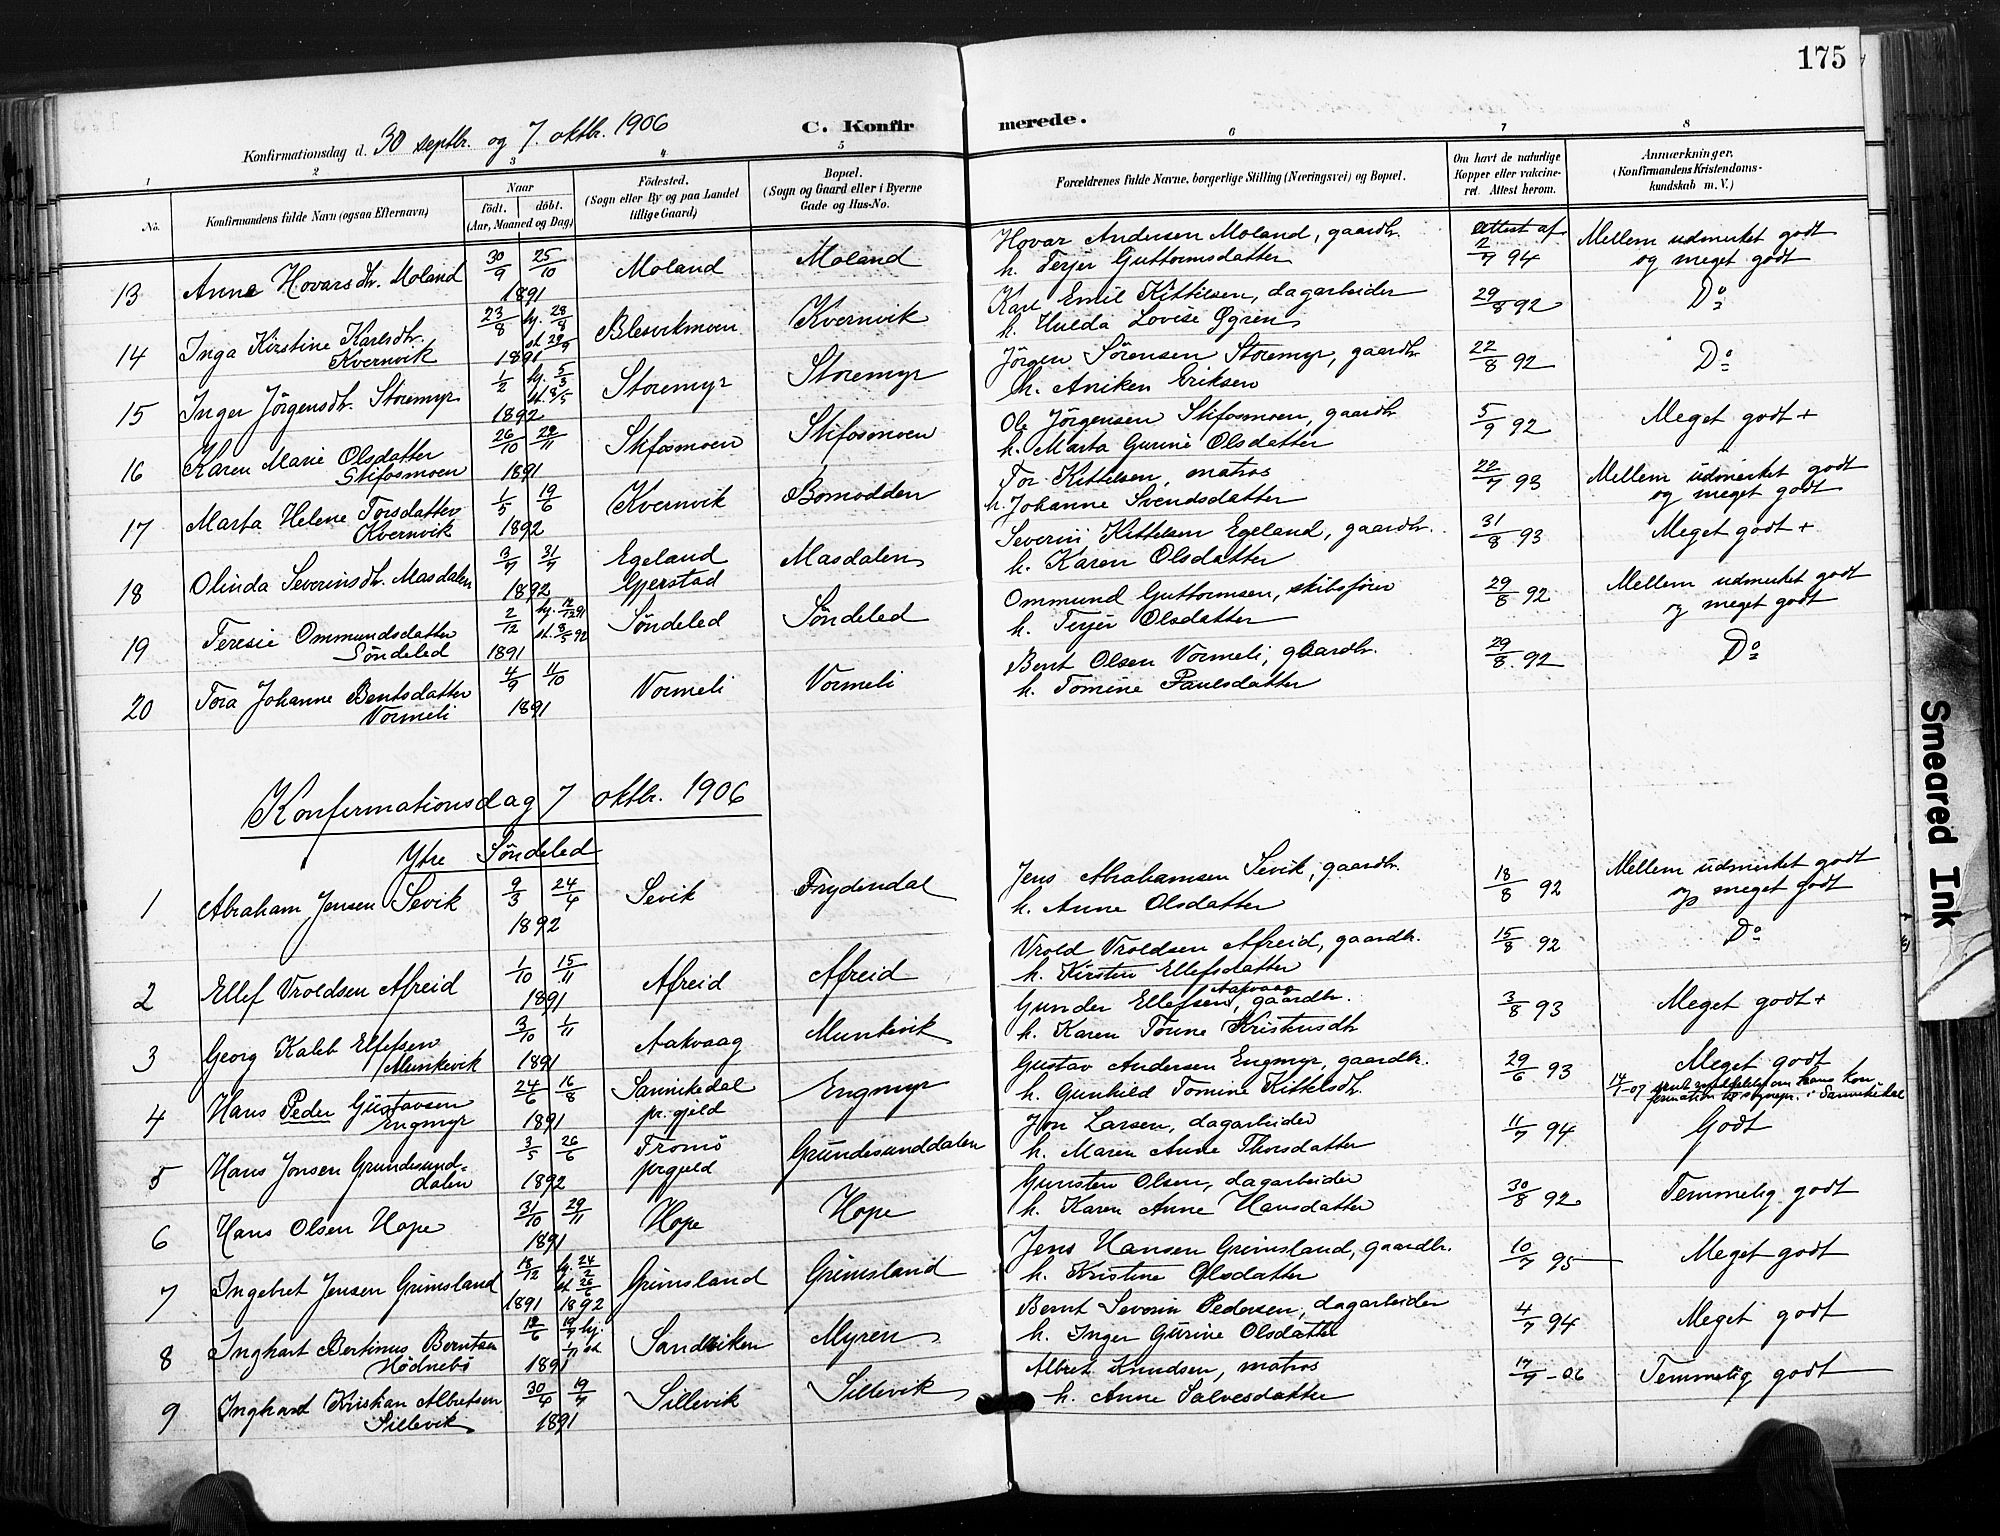 175
Konfirmationsdag d. 30 septbr. og 7. oktbr. 1906
C. Konfirmerede.
1 2 3 4 5 6 7 8
No.
Konfirmandens fulde Navn (ogsaa Efternavn)
Naar
født. døbt.
(Aar, Maaned og Dag)
Fødested.
(Sogn eller By og paa Landet
tillige Gaard)
Bopæl.
(Sogn og Gaard eller i Byerne
Gade og Hus-No.
Forældrenes fulde Navne, borgerlige Stilling (Næringsvei) og Bopæl.
Om havt de naturlige
Kopper eller vaccine-
ret. Attest herom.
Anmærkninger.
(Konfirmandens Kristendoms-
kundskab m. V.)
13 Anne Hovarsdtr. Moland 30/9 25/10 1891 Moland Moland
Hovar Andersen Moland, gaardbr.
h. Terjer Guttormsdatter
Attest af 2/7 94
Mellem udmerket godt
og meget godt
14 Inga Kirstine Karlsdtr.
Kvernvik
23/8 hj. 28/8 st. 29/9 1891 Blesvikmoen Kvernvik
Karl Emil Kittilsen, dagarbeider
h. Hulda Lovise Øgren
29/8 92 Do
15 Inger Jörgensdtr. Storemyr 1/2 hj. 5/3 st. 8/5 1892 Storemyr Storemyr
Jörgen Sörensen Storemyr, gaardbr.
h. Aniken Eriksen
22/8 92 Do
16 Karen Marie Olsdatter
Stifosmoen
26/10 29/11 1891 Stifosmoen Stifosmoen
Ole Jörgensen Stifosmoen, gaardbr.
h. Marta Gurine Olsdatter
5/9 92 Meget godt +
17 Marta Helene Torsdatter
Kvernvik
1/5 19/6 1892 Kvernvik Bomodden
Tor Kittilsen, matros
h. Johanne Svendsdatter
22/7 93 Mellem udmerket godt
og meget godt
18 Olinda Severinsdtr. Masdalen 3/7 31/7 1892 Egeland
Gjerstad
Masdalen
Severin Kittelsen Egeland, gaardbr.
h. Karen Olsdatter
31/8 93 Meget godt +
19 Teresie Ommundsdatter
Söndeled
2/12 hj. 17/12 91 st. 8/5 92 1891 Söndeled Söndeled
Ommund Guttormsen, skibsförer
h. Terjer Olsdatter
29/8 92 Mellem udmerket godt
og meget godt
20 Tora Johanne Bentsdatter
Vormeli
4/9 11/10 1891 Vormeli Vormeli
Bent Olsen Vormeli, gaardbr.
h. Tomine Paulsdatter
29/8 92 Do
Konfirmationsdag 7 oktbr. 1906
Ytre Söndeled
1 Abraham Jensen Sevik 9/3 24/4 1892 Sevik Frydendal
Jens Abrahamsen Sevik, gaardbr.
h. Anne Olsdatter
18/8 92 Mellem udmerket godt
og meget godt
2 Ellef Vroldsen Afreid 1/10 15/11 1891 Afreid Afreid
Vrold Vroldsen Afreid, gaardbr.
h. Kirsten Ellefsdatter
15/8 92 Do
3 Georg Kaleb Ellefsen
Munkevik
3/10 1/11 1891 Aakvaag Munkevik
Gunder Ellefsen Aakvaag, gaardbr.
h. Karen Tomine Kristensdtr
3/8 93 Meget godt +
4 Hans Peder Gustavsen
Engmyr
24/6 16/8 1891 Sannikedal
pr.gjeld
Engmyr
Gustav Andersen Engmyr, gaardbr.
h. Gunhild Tomine Kittelsdtr.
29/6 93 Meget godt
14/1-07 sendt meddelelse om hans kon
firmation til sognepr. i Sannikedal
5 Hans Jonsen Grundesund-
dalen
3/5 26/6 1892 Tromö
prgjeld
Grundesunddalen
Jon Larsen, dagarbeider
h. Maren Anne Thorsdatter
11/7 94 Godt
6 Hans Olsen Hope 31/10 29/11 1891 Hope Hope
Gunsten Olsen, dagarbeider
h. Karen Anne Hansdatter
30/8 92 Temmelig godt
7 Ingebret Jensen Grimsland 18/12 hj. 24/2 st. 26/6 1891 1892 Grimsland Grimsland
Jens Hansen Grimsland, gaardbr.
h. Kristine Olsdatter
10/7 95 Meget godt
8 Inghart Bertinus Berntsen
Hödnebö
12/6 19/7 hj. 1891 Sandviken Myren
Bernt Severin Pedersen, dagarbeider
h. Inger Gurine Olsdatter
4/7 94 Meget godt
9 Inghard Kristian Albretsen
Sillevik
30/4 19/7 1891 Sillevik Sillevik
Albret Knudsen, matros
h. Anne Salvesdatter
17/7 - 06 Temmelig godt
Smeared Ink